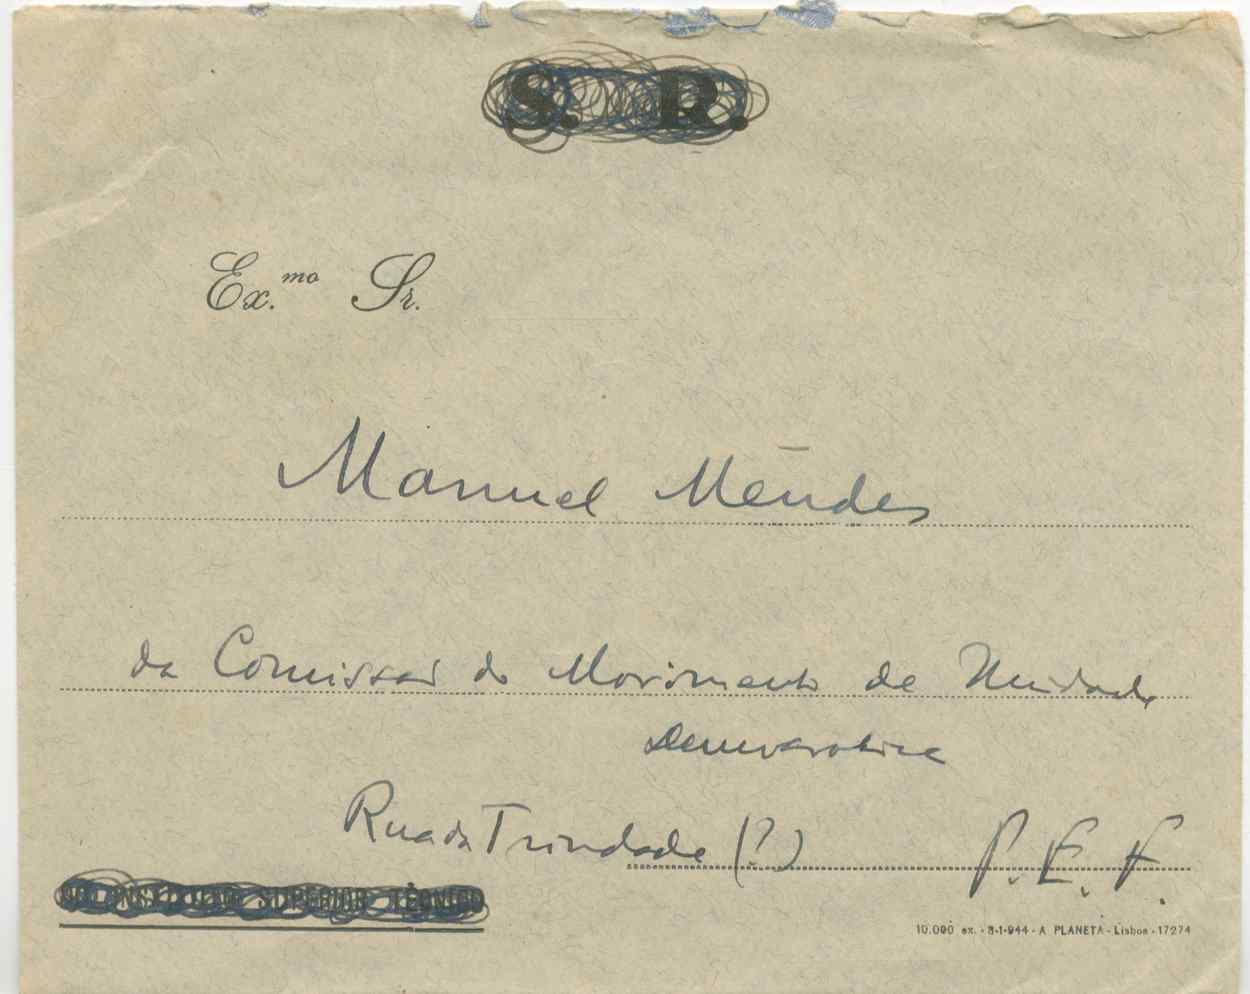 S. R.
Ex.mo Sr.
Manuel Mendes
da Comissão do Movimento de Unidade
Democratica
Rua da Trindade (?) P. E. F.
DO INSTITUTO SUPERIOR TÉCNICO
10.000 ex. - 3-1-944 - A PLANETA - Lisboa - 17274